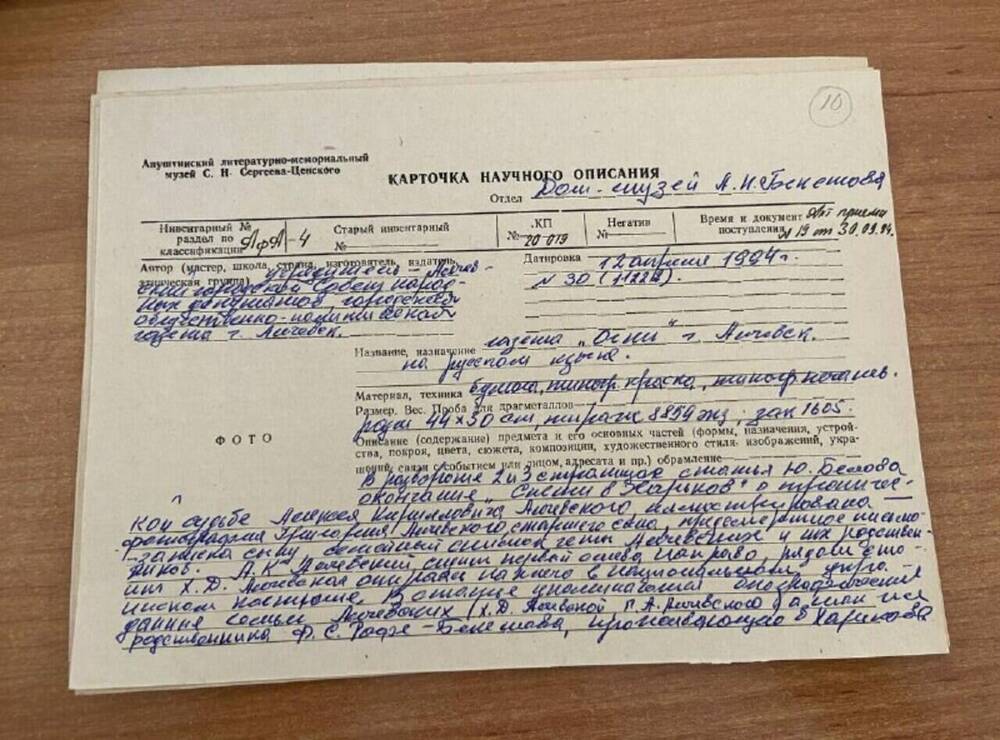 10
Алуштинский литературно-мемориальный
музей С. Н. Сергеева-Ценского
КАРТОЧКА НАУЧНОГО ОПИСАНИЯ
Отдел Дом-музей А.Н. Бекетова
Инвентарный №
раздел по
классификации АфА-4
Старый инвентарный
№
КП
№ 20 019
Негатив
№
Время и документ Акт приема
поступления N 19 от 30.09.94.
Автор (мастер, школа, страна, изготовитель, издатель,
этническая группа) учредитель – Алчев-
ский городской Совет народ-
ных депутатов, городская
общественно-политическая
газета г. Алчевск.
Датировка 12 апреля 1994 г.
N 30
Название, назначение газета „Огни" г. Алчевск.
на русском языке.
Материал, техника бумага, типогр. краска, типогр. печать.
Размер. Вес. Проба для драгметаллов
44×30 см, тираж 8854 экз. зак 1605.
Описание (содержание) предмета и его основных частей (формы, назначения, устрой-
ства, покроя, цвета, сюжета, композиции, художественного стиля, изображений, укра-
шений, связи с событием или лицом, адресата и пр.) обрамление
В развороте 2 и 3 страницах статья Ю. Белова
окончание „Спеши в Харьков" о трагичес-
ФОТО
кой судьбе Алексея Кирилловича Алчевского, иллюстрирована
фотография Григория Алчевского, старшего сына, предсмертное письмо-
записка сыну, семейный снимок четы Алчевских и их родствен-
ников. А.К. Алчевский сидит первый слева направо, рядом сто-
ит Х.Д. Алчевская опираясь на плечо в национальном украи-
нском костюме. В статье упоминаются биографические
данные семьи Алчевских (Х.Д. Алчевской Г.А. Алчевского) а также
родственника Ф.С. Бекетова, проживающего в Харькове